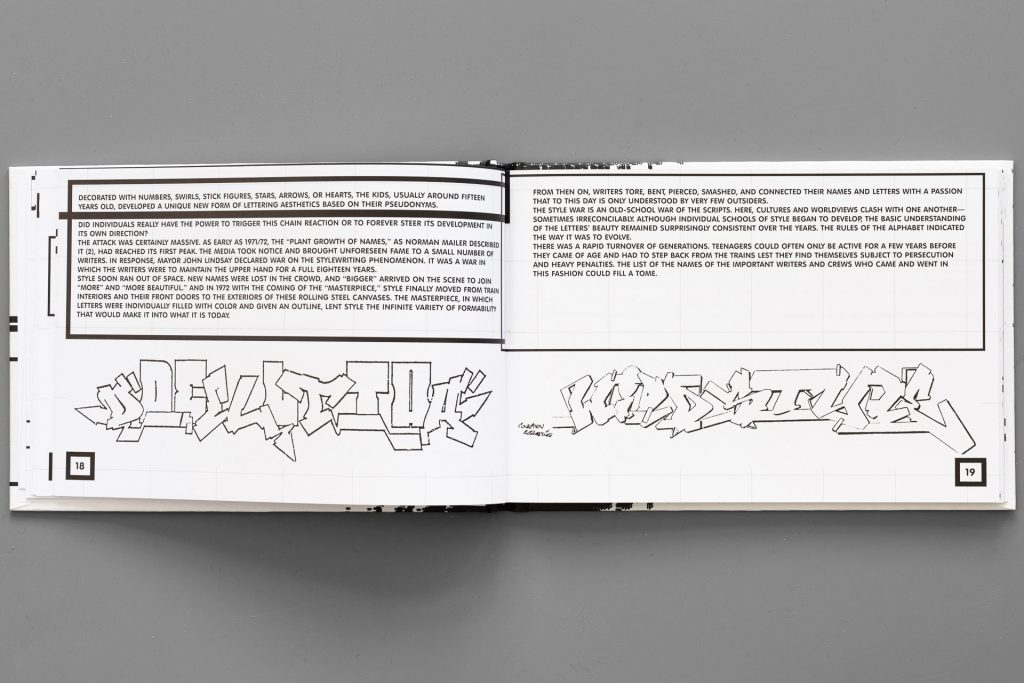 DECORATED WITH NUMBERS, SWIRLS, STICK FIGURES, STARS, ARROWS, OR HEARTS, THE KIDS, USUALLY AROUND FIFTEEN
YEARS OLD, DEVELOPED A UNIQUE NEW FORM OF LETTERING AESTHETICS BASED ON THEIR PSEUDONYMS.
DID INDIVIDUALS REALLY HAVE THE POWER TO TRIGGER THIS CHAIN REACTION OR TO FOREVER STEER ITS DEVELOPMENT IN
ITS OWN DIRECTION?
THE ATTACK WAS CERTAINLY MASSIVE. AS EARLY AS 1971/72, THE "PLANT GROWTH OF NAMES," AS NORMAN MAILER DESCRIBED
IT (2), HAD REACHED ITS FIRST PEAK. THE MEDIA TOOK NOTICE AND BROUGHT UNFORESEEN FAME TO A SMALL NUMBER OF
WRITERS. IN RESPONSE, MAYOR JOHN LINDSAY DECLARED WAR ON THE STYLEWRITING PHENOMENON. IT WAS A WAR IN
WHICH THE WRITERS WERE TO MAINTAIN THE UPPER HAND FOR A FULL EIGHTEEN YEARS.
STYLE SOON RAN OUT OF SPACE. NEW NAMES WERE LOST IN THE CROWD, AND "BIGGER" ARRIVED ON THE SCENE TO JOIN
"MORE" AND "MORE BEAUTIFUL." AND IN 1972 WITH THE COMING OF THE "MASTERPIECE," STYLE FINALLY MOVED FROM TRAIN
INTERIORS AND THEIR FRONT DOORS TO THE EXTERIORS OF THESE ROLLING STEEL CANVASES. THE MASTERPIECE, IN WHICH
LETTERS WERE INDIVIDUALLY FILLED WITH COLOR AND GIVEN AN OUTLINE, LENT STYLE THE INFINITE VARIETY OF FORMABILITY
THAT WOULD MAKE IT INTO WHAT IT IS TODAY.
18
FROM THEN ON, WRITERS TORE, BENT, PIERCED, SMASHED, AND CONNECTED THEIR NAMES AND LETTERS WITH A PASSION
THAT TO THIS DAY IS ONLY UNDERSTOOD BY VERY FEW OUTSIDERS.
THE STYLE WAR IS AN OLD-SCHOOL WAR OF THE SCRIPTS. HERE, CULTURES AND WORLDVIEWS CLASH WITH ONE ANOTHER—
SOMETIMES IRRECONCILABLY. ALTHOUGH INDIVIDUAL SCHOOLS OF STYLE BEGAN TO DEVELOP, THE BASIC UNDERSTANDING
OF THE LETTERS' BEAUTY REMAINED SURPRISINGLY CONSISTENT OVER THE YEARS. THE RULES OF THE ALPHABET INDICATED
THE WAY IT WAS TO EVOLVE.
THERE WAS A RAPID TURNOVER OF GENERATIONS. TEENAGERS COULD OFTEN ONLY BE ACTIVE FOR A FEW YEARS BEFORE
THEY CAME OF AGE AND HAD TO STEP BACK FROM THE TRAINS LEST THEY FIND THEMSELVES SUBJECT TO PERSECUTION
AND HEAVY PENALTIES. THE LIST OF THE NAMES OF THE IMPORTANT WRITERS AND CREWS WHO CAME AND WENT IN
THIS FASHION COULD FILL A TOME.
19